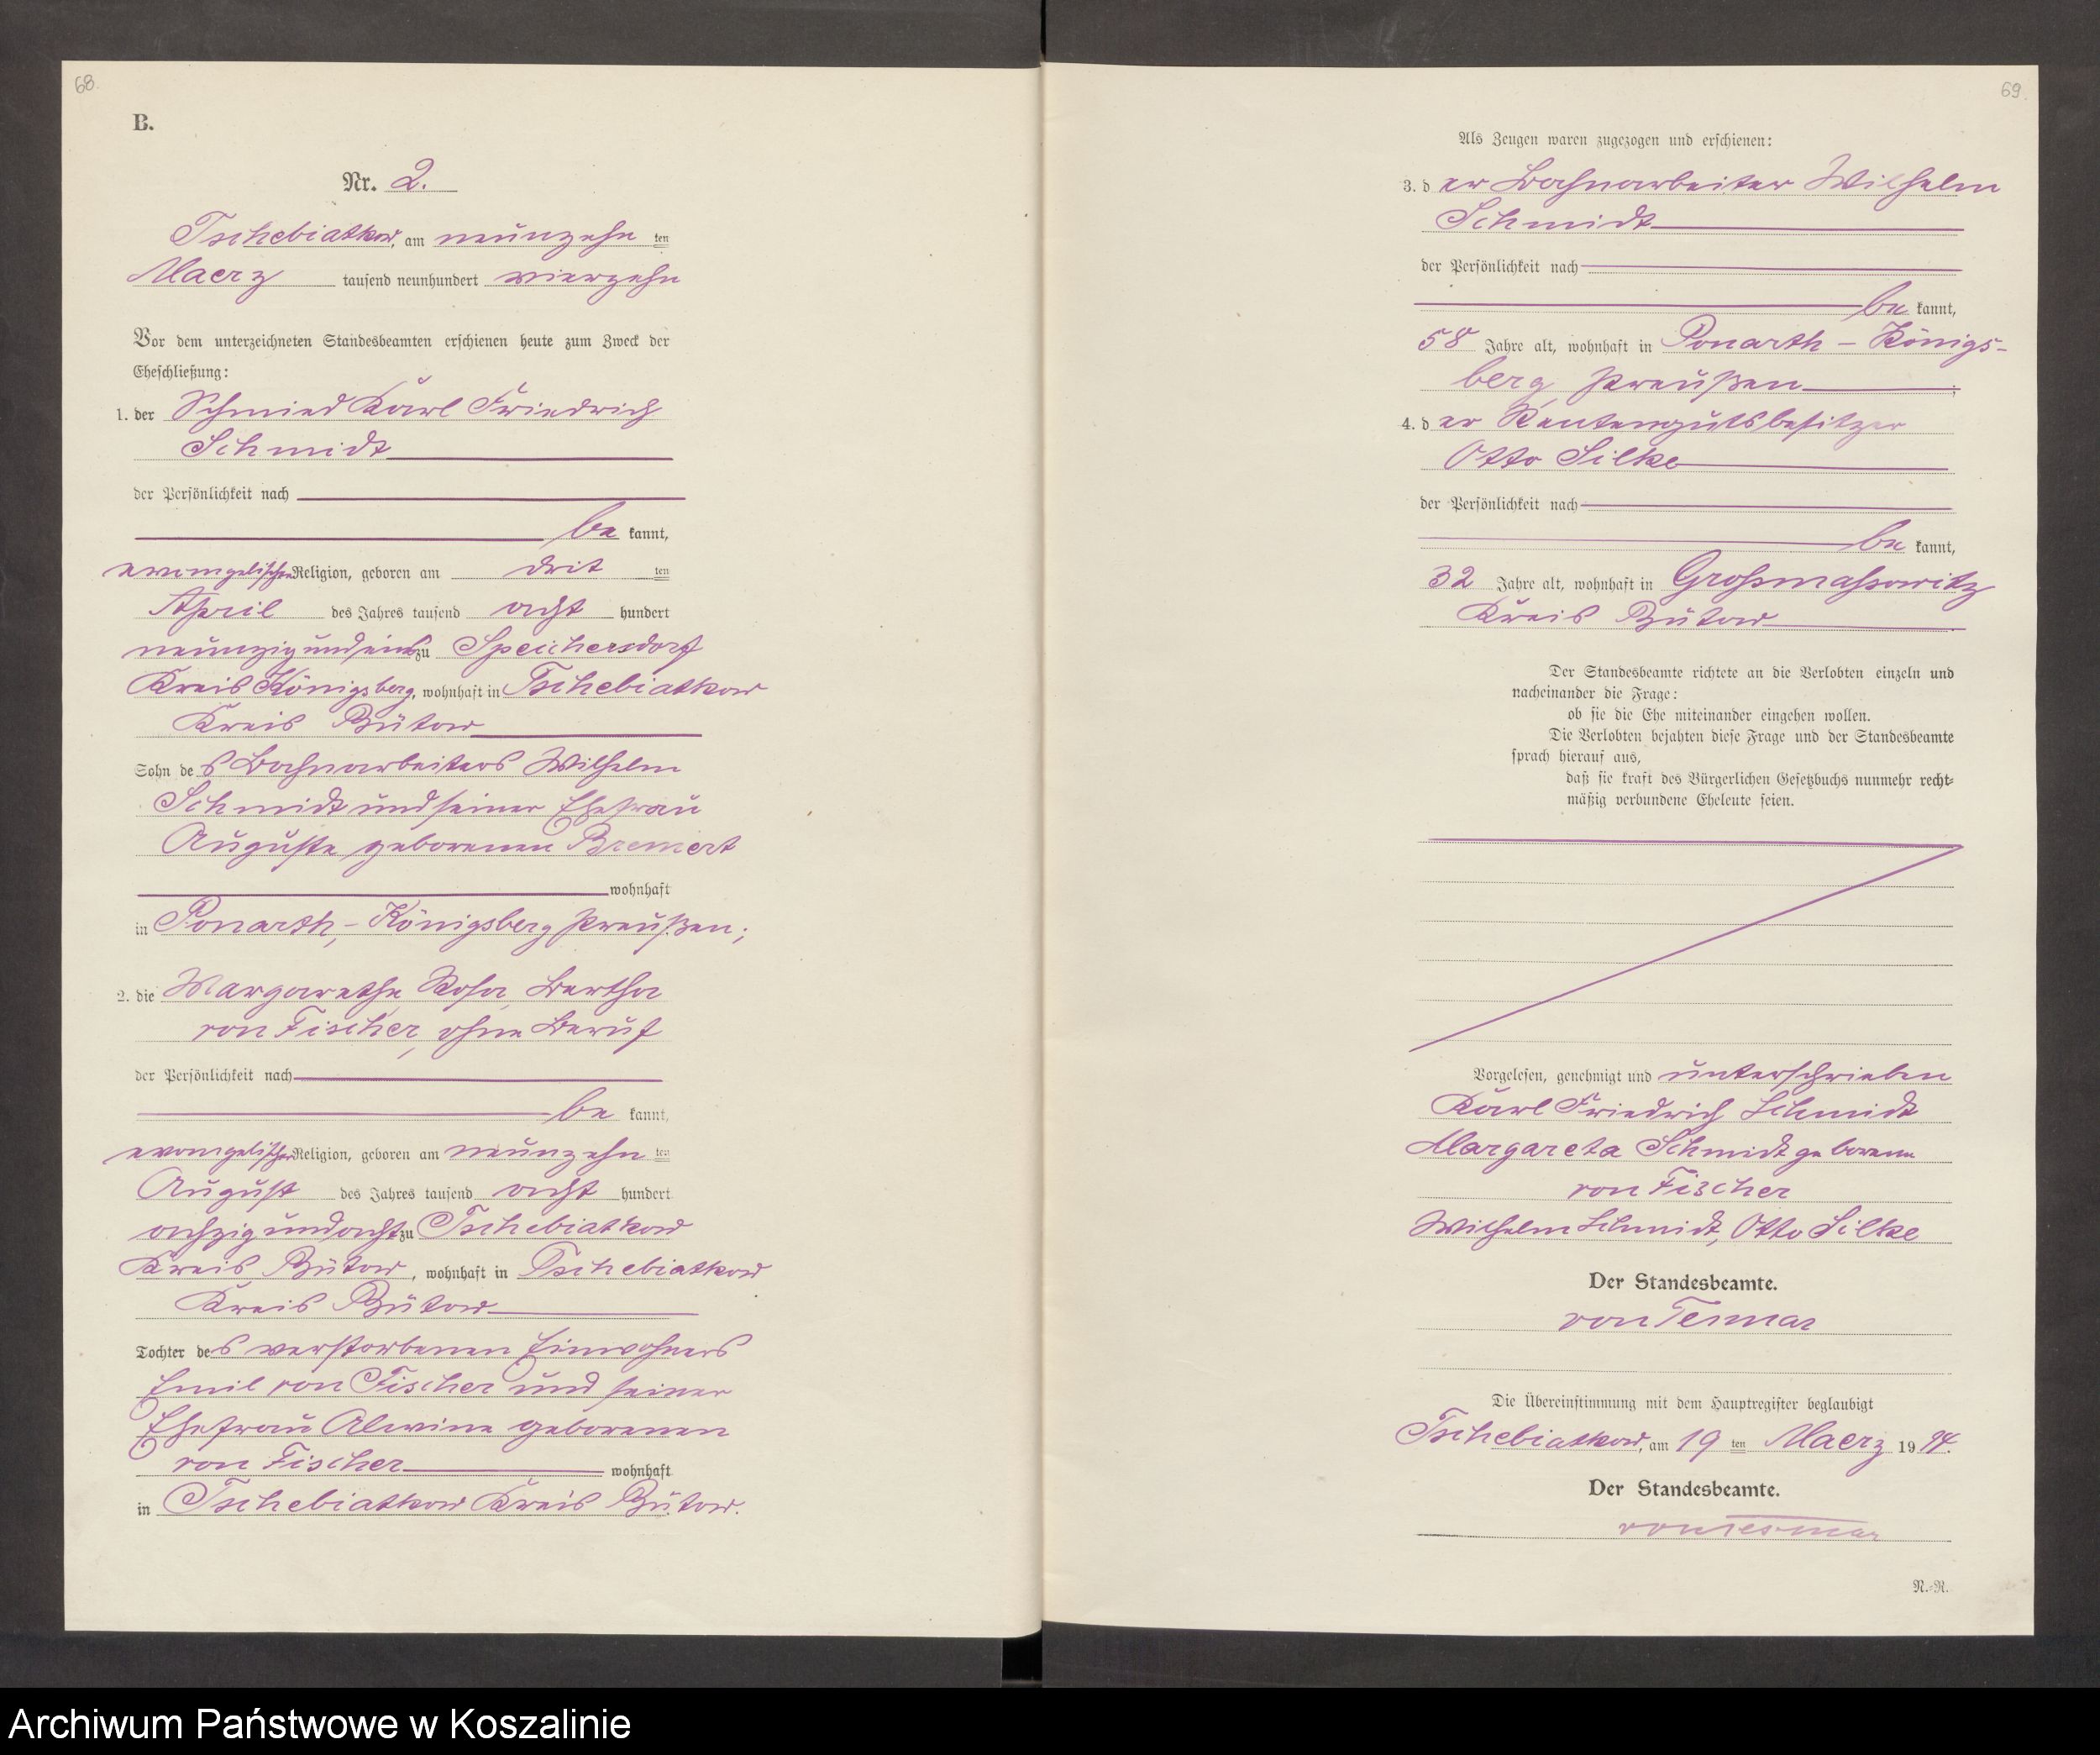 68.
B.
Nr. 2.
Tschebiatkow, am neunzehn ten
Maerz tausend neunhundert vierzehn
Vor dem unterzeichneten Standesbeamten erschienen heute zum Zweck der
Eheschließung:
1. der Schmied Karl Friedrich
Schmidt
der Persönlichkeit nach
be kannt,
evangelischen Religion, geboren am drit ten
April des Jahres tausend acht hundert
neunzig und eins zu Speichersdorf
Kreis Königsberg, wohnhaft in Tschebiatkow
Kreis Bütow
Sohn des Bahnarbeiters Wilhelm
Schmidt und seiner Ehefrau
Auguste geborenen Bremert
wohnhaft
in Ponarth, - Königsberg Preußen;
2. die Margarethe Rosa Bertha
von Fischer, ohne Beruf
der Persönlichkeit nach
be kannt,
evangelischen Religion, geboren am neunzehn ten
August des Jahres tausend acht hundert
achzig und acht zu Tschebiatkow
Kreis Bütow, wohnhaft in Tschebiatkow
Kreis Bütow
Tochter des verstorbenen Einwohners
Emil von Fischer und seiner
Ehefrau Alwine geborenen
von Fischer wohnhaft
in Tschebiatkow Kreis Bütow.
69.
Als Zeugen waren zugezogen und erschienen:
3. der Bahnarbeiter Wilhelm
Schmidt
der Persönlichkeit nach
be kannt,
58 Jahre alt, wohnhaft in Ponarth - Königs-
berg Preußen;
4. der Rentengutsbesitzer
Otto Silke
der Persönlichkeit nach
be kannt,
32 Jahre alt, wohnhaft in Großmassowitz
Kreis Bütow
Der Standesbeamte richtete an die Verlobten einzeln und
nacheinander die Frage:
ob sie die Ehe miteinander eingehen wollen.
Die Verlobten bejahten diese Frage und der Standesbeamte
sprach hierauf aus,
daß sie kraft des Bürgerlichen Gesetzbuchs nunmehr recht-
mäßig verbundene Eheleute seien.
Vorgelesen, genehmigt und unterschrieben
Karl Friedrich Schmidt
Margareta Schmidt geborene
von Fischer
Wilhelm Schmidt, Otto Silke
Der Standesbeamte.
von Tesmar
Die Übereinstimmung mit dem Hauptregister beglaubigt
Tschebiatkow, am 19 ten Maerz 19 14.
Der Standesbeamte.
von Tesmar
N.-R.
Archiwum Państwowe w Koszalinie